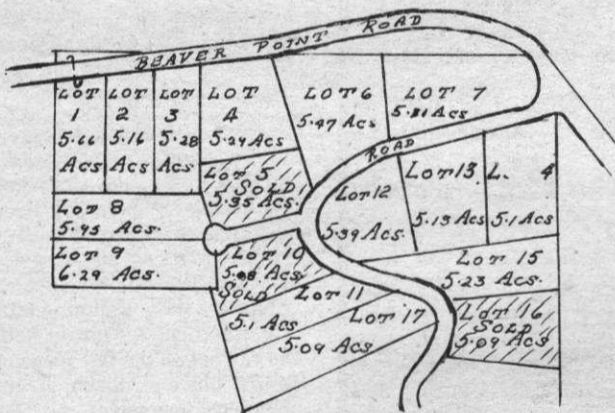 BEAVER POINT ROAD
LOT 1
5.66 Acs
LOT 2
5.16 Acs
LOT 3
5.28 Acs
LOT 4
5.29 Acs
LOT 5
SOLD
5.35 Acs.
LOT 6
5.47 Acs
LOT 7
Acs
ROAD
LOT 8
5.45 Acs.
LOT 9
6.29 Acs.
LOT 10
Acs
SOLD
LOT 11
5.1 Acs
LOT 12
5.39 Acs.
LOT 13.
5.13 Acs
L. 4
5.1 Acs
LOT 15
5.23 Acs.
LOT 16
SOLD
5.09 Acs
LOT 17
5.09 Acs